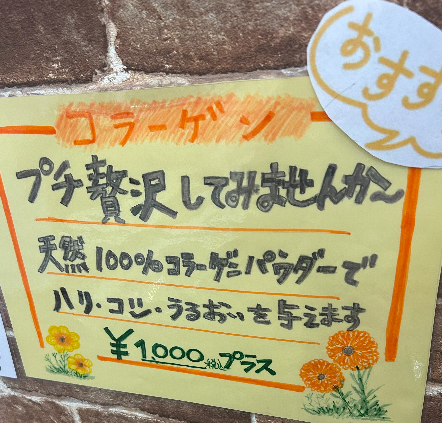 おすす
コラーゲン
プチ贅沢してみませんか〜
天然100%コラーゲンパウダーで
ハリ・コシ・うるおいを与えます
¥1,000税込プラス